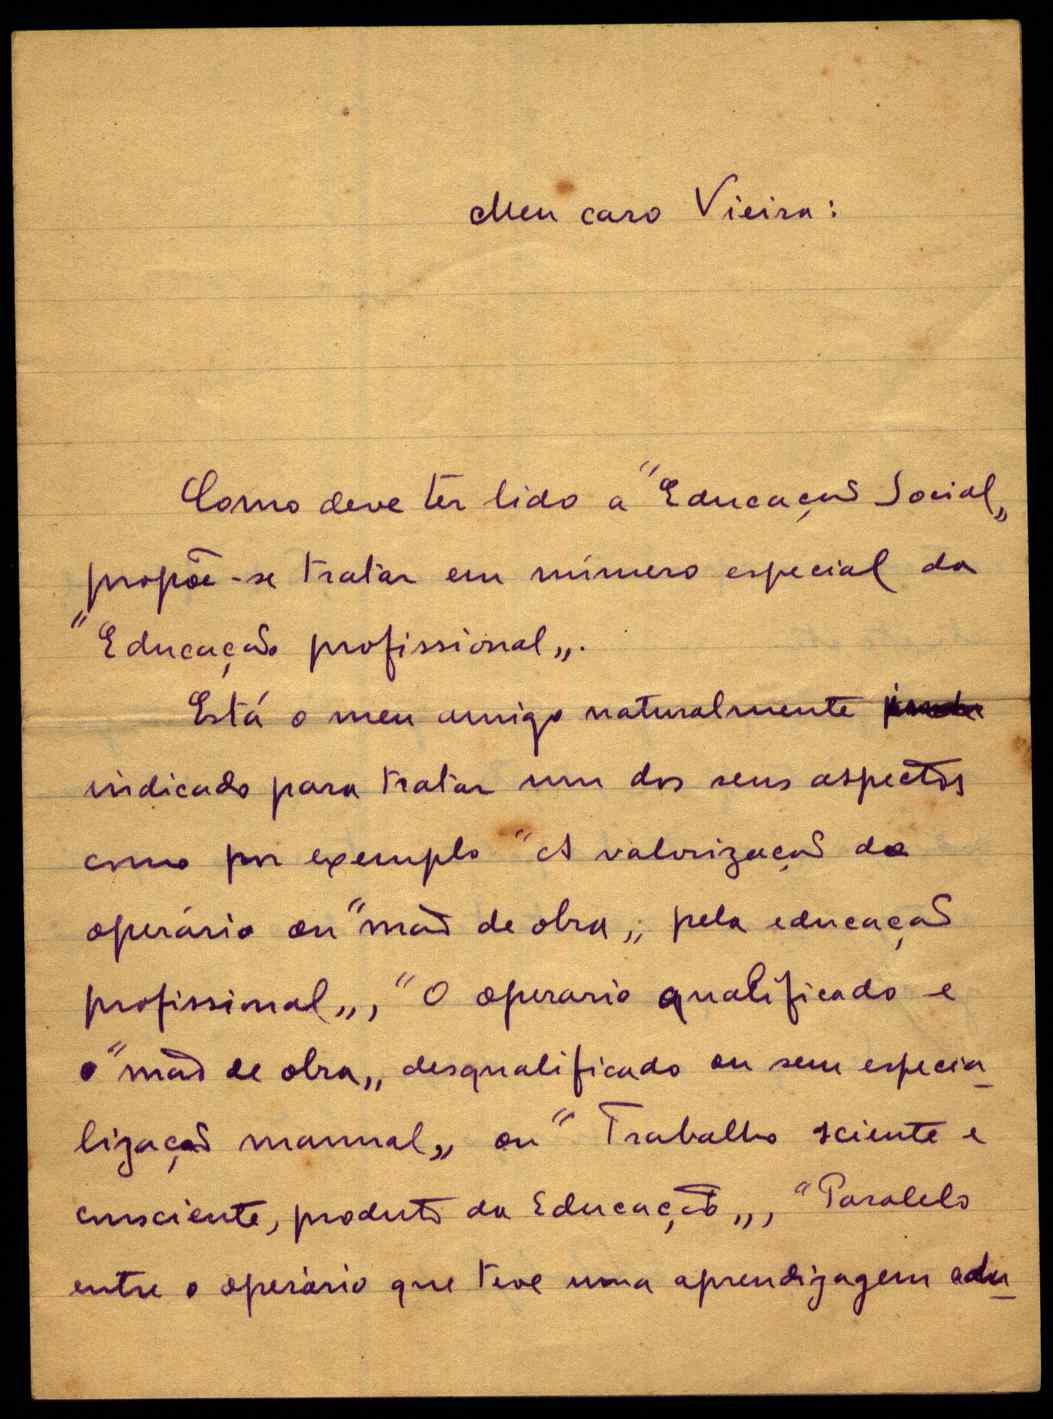 Meu caro Vieira:
Como deve ter lido a "Educação Social„
propõe-se tratar em número especial da
"Educação profissional„.
Está o meu amigo naturalmente
indicado para tratar um dos seus aspectos
como por exemplo "A valorização do
operário ou "mão de obra„ pela educação
profissional„, "O operario qualificado e
o "mão de obra„ desqualificado ou sem especia-
lização manual„ ou "Trabalho sciente e
consciente, produto da Educação„, "Paralelo
entre o operário que teve uma aprendizagem edu-